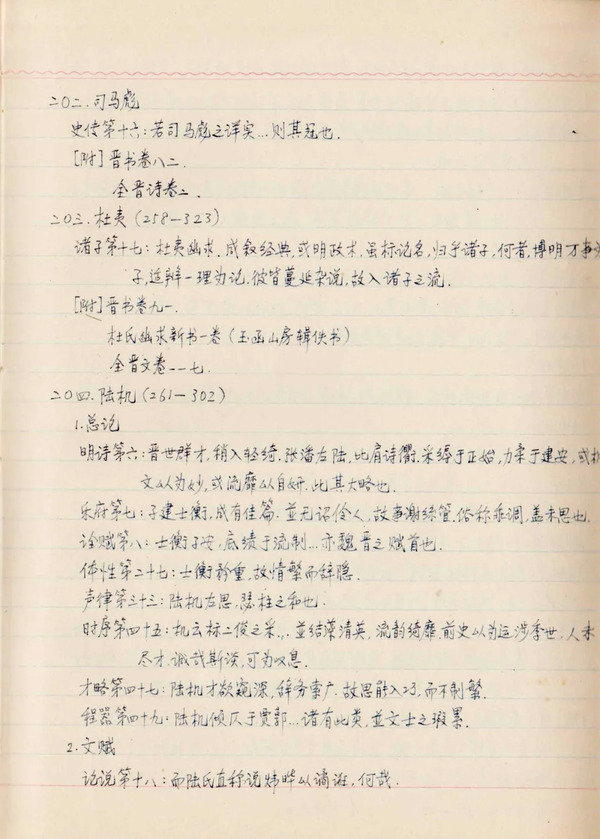 二〇二.司马彪
史传第十六:若司马彪之详实…则其冠也.
[附]晋书卷八二.
全晋诗卷二.
二〇三.杜夷(258—323)
诸子第十七:杜夷幽求.咸叙经典,或明政术,虽标论名,归乎诸子,何者,博明万事为
子,适辩一理为论,彼皆蔓延杂说,故入诸子之流.
[附]晋书卷九一.
杜氏幽求新书一卷(玉函山房辑佚书)
全晋文卷一一七.
二〇四.陆机(261—303)
1.总论
明诗第六:晋世群才,稍入轻绮.张潘左陆,比肩诗衢.采缛于正始,力柔于建安,或析
文以为妙,或流靡以自妍.此其大略也.
乐府第七:子建士衡,咸有佳篇.並无诏伶人,故事谢丝管.俗称乖调,盖未思也.
诠赋第八:士衡子安,底绩于流制…亦魏晋之赋首也.
体性第二十七:士衡矜重,故情繁而辞隐.
声律第三十三:陆机左思,瑟柱之和也.
时序第四十五:机云标二俊之采….並结藻清英,流韵绮靡.前史以为运涉季世,人未
尽才.诚哉斯谈,可为叹息.
才略第四十七:陆机才欲窥深,辞务索广.故思能入巧,而不制繁.
程器第四十九.陆机倾仄于贾郭…诸有此类,並文士之瑕累.
2.文赋
论说第十八:而陆氏直称说炜晔以谲诳,何哉.